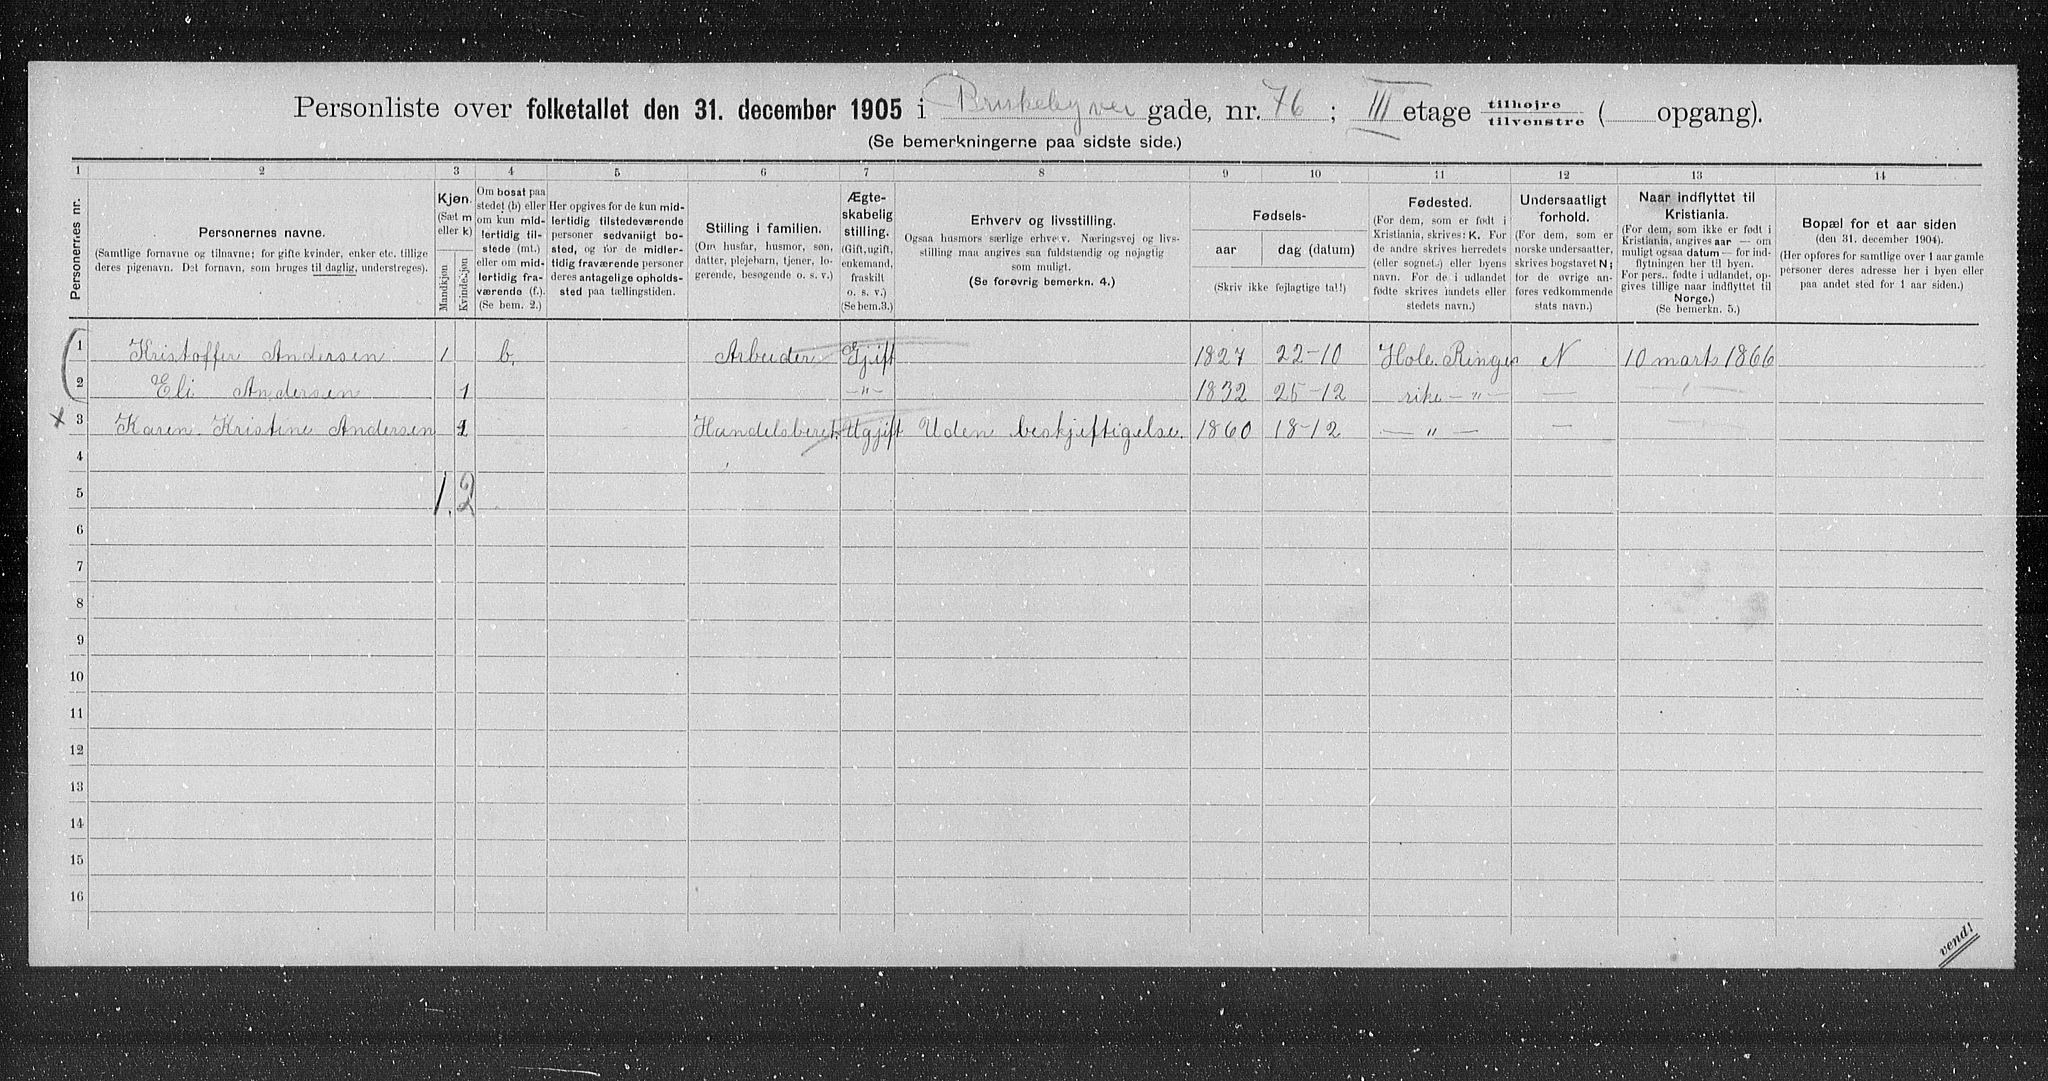 Personliste over folketallet den 31. december 1905 i Brinkebyver gade, nr. 76; III etage tilhøjre tilvenstre ( opgang).
(Se bemerkningerne paa sidste side.)
1 2 3 4 5 6 7 8 9 10 11 12 13 14
Personernes nr.
Personernes navne.
(Samtlige fornavne og tilnavne; for gifte kvinder, enker etc. tillige
deres pigenavn. Det fornavn, som bruges til daglig, understreges).
Kjøn.
(Sæt m
eller k)
Mandkjøn
Kvindekjøn
Om bosat paa
stedet (b) eller
om kun mid-
lertidig til-
stede (mt.)
eller om mid-
lertidig fra-
værende (f.).
(Se bem. 2.)
Her opgives for de kun mid-
lertidig tilstedeværende
personer sedvanligt bo-
sted, og for de midler-
tidig fraværende personer
deres antagelige opholds-
sted paa tællingstiden.
Stilling i familien.
(Om husfar, husmor, søn,
datter, plejebarn, tjener, lo-
gerende, besøgende o. s. v.)
Ægte-
skabelig
stilling.
(Gift, ugift,
enkemand,
fraskilt
o. s. v.)
(Se bem.3.)
Erhverv og livsstilling.
Ogsaa husmors særlige erhverv. Næringsvej og livs-
stilling maa angives saa fuldstændig og nøjagtig
som muligt.
(Se forøvrig bemerkn. 4.)
Fødsels-
aar dag (datum)
(Skriv ikke fejlagtige tal!)
Fødested.
(For dem, som er født i
Kristiania, skrives: K. For
de andre skrives herredets
(eller sognet.) eller byens
navn. For de i udlandet
fødte skrives landets eller
stedets navn.)
Undersaatligt
forhold.
(For dem, som er
norske undersaatter,
skrives bogstavet N;
for de øvrige an-
føres vedkommende
stats navn.)
Naar indflyttet til
Kristiania.
(For dem, som ikke er født i
Kristiania, angives aar — om
muligt ogsaa datum — for ind-
flytningen her til byen.
For pers. fødte i udlandet, op-
gives tillige naar indflyttet til
Norge.)
(Se bemerkn. 5.)
Bopæl for et aar siden
(den 31. december 1904).
(Her opføres for samtlige over 1 aar gamle
personer deres adresse her i byen eller
paa andet sted for 1 aar siden.)
1 Kristoffer Andersen 1 b. Arbeider Gjift 1827 22-10 Hole Ringe N 10 marts 1866
2 Eli Andersen 1 —"— 1832 25-12 rike —"— — —
x 3 Karen Kristine Andersen 1 Handelsberet. Ugjift Uden beskjeftigelse. 1860 18-12 — " — — —
4
5 1. 2
6
7
8
9
10
11
12
13
14
15
16
vend!